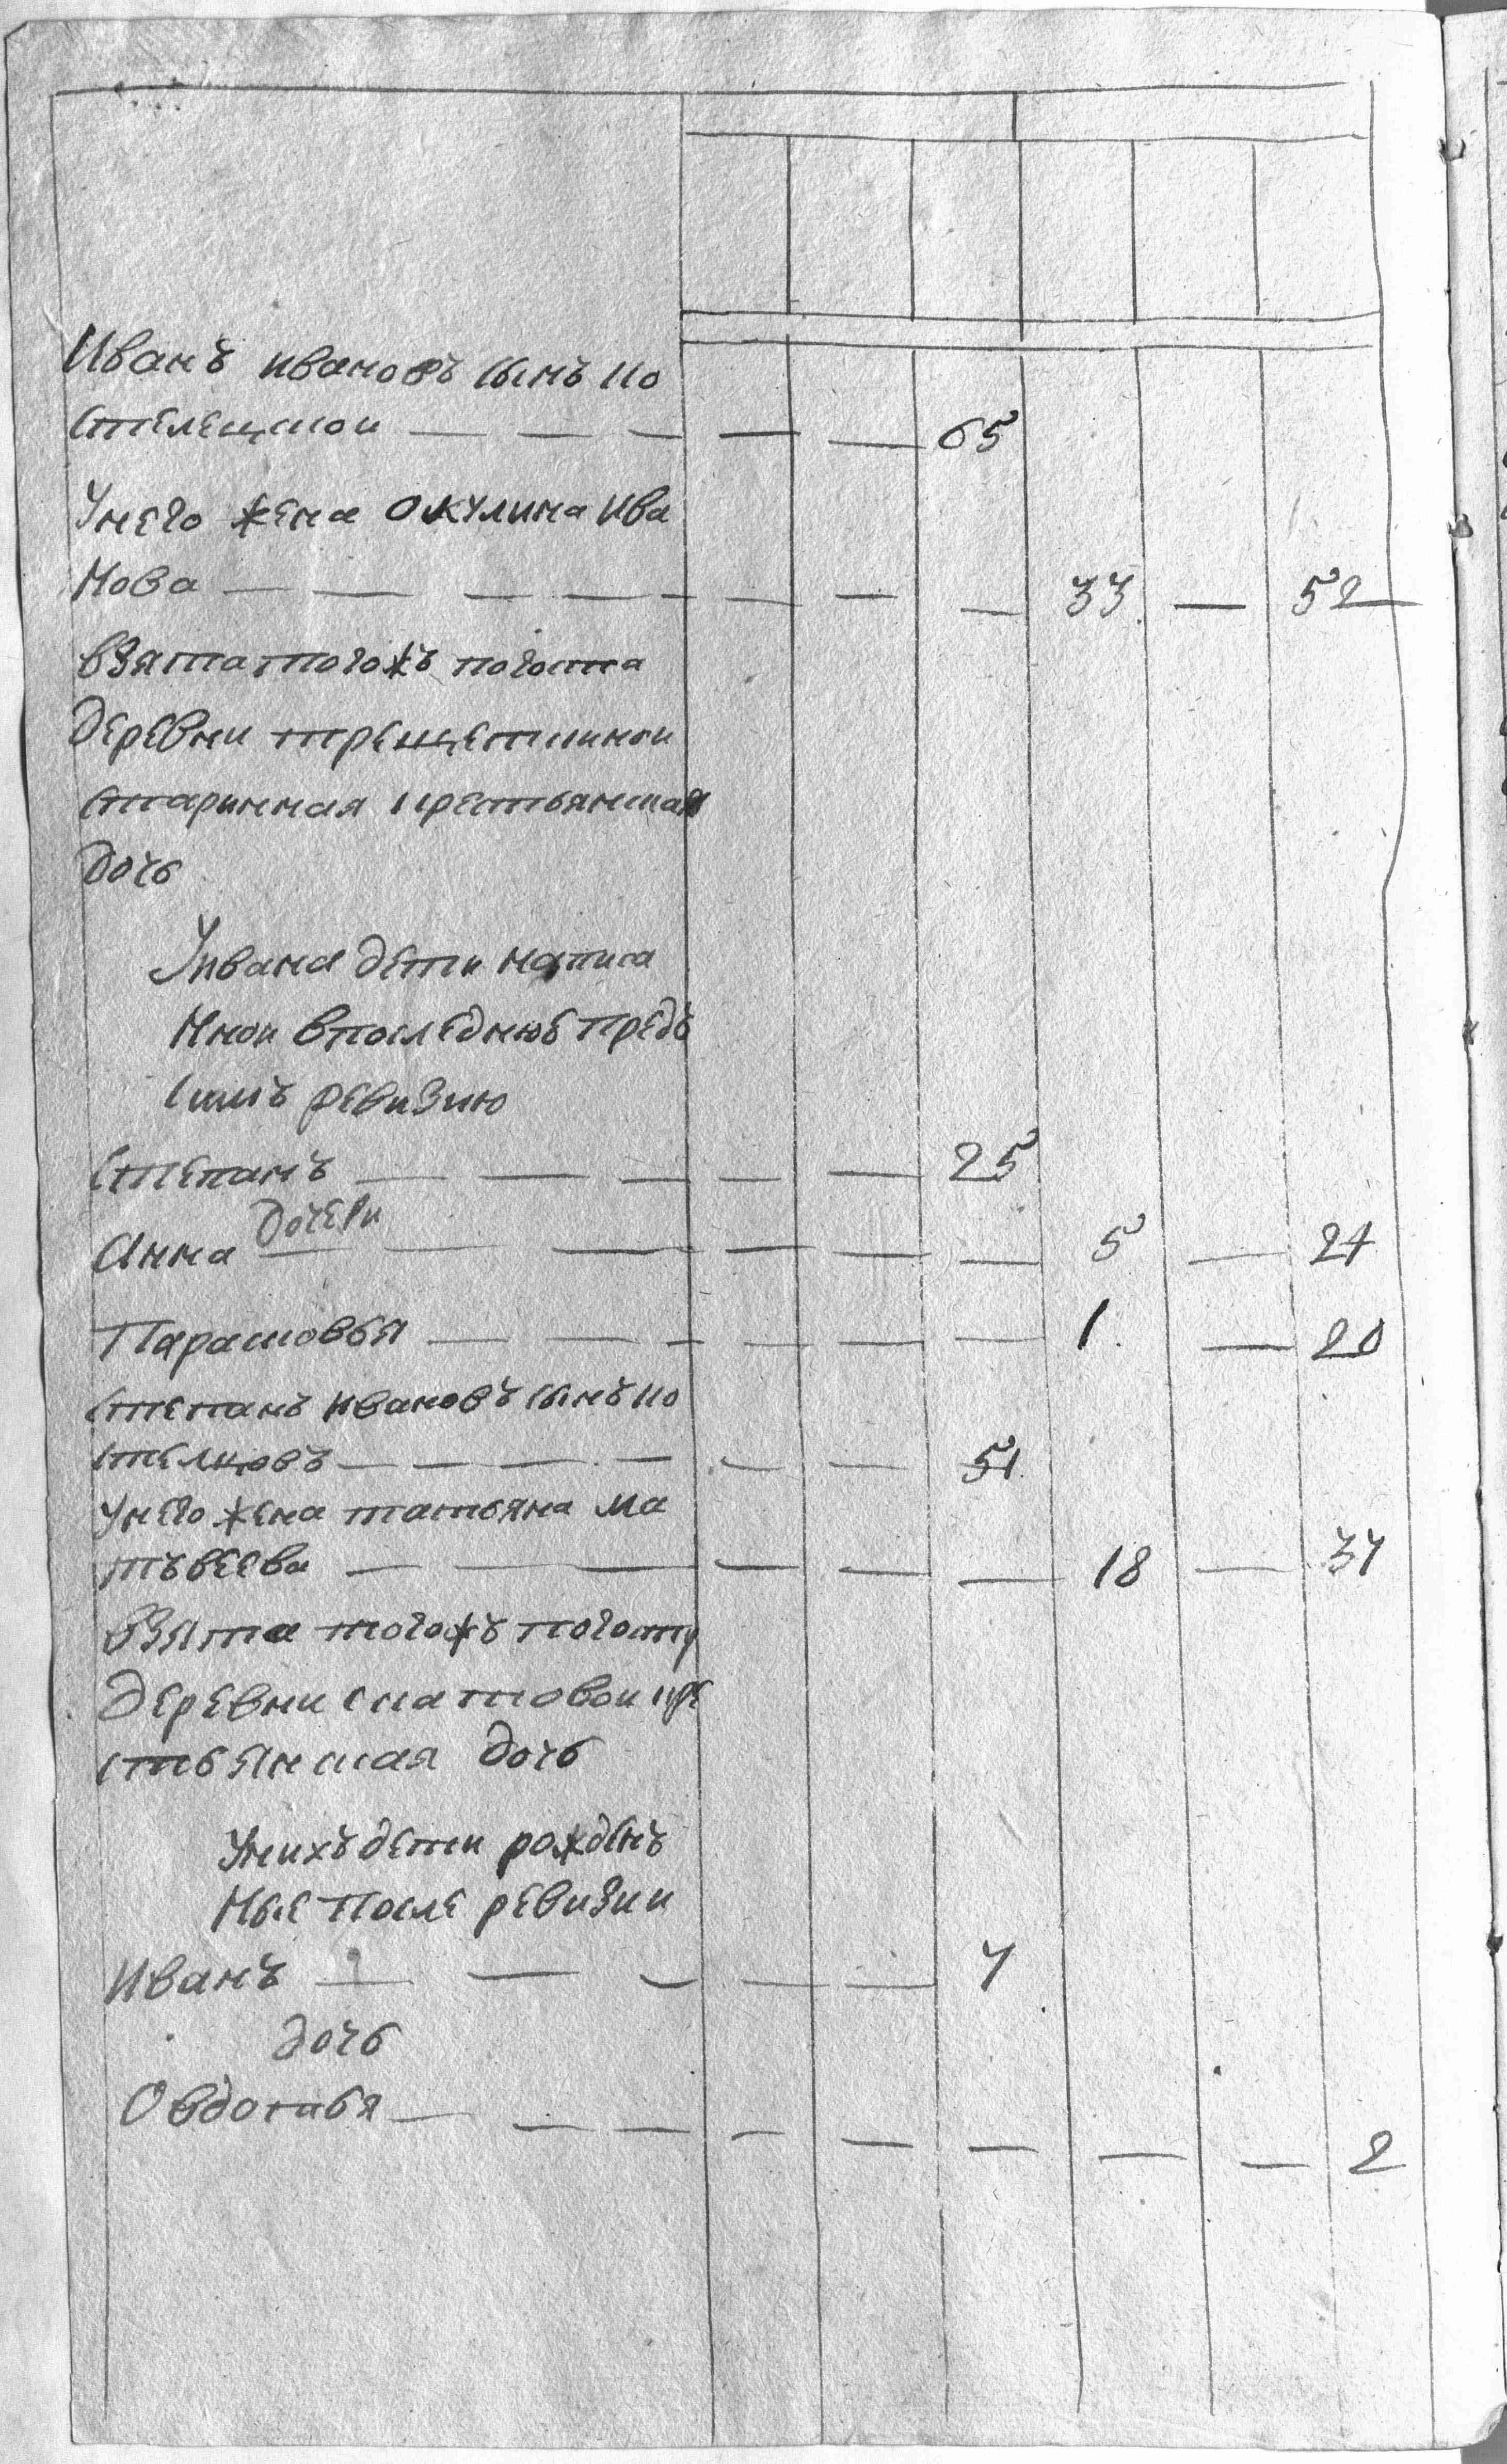 Иванъ ивановъ сынъ ко
стелецкой — — — — — 65
Унего жена окулина ива
нова — — — — — — — — 33 — 52
взята тогожъ погоста
деревни трещеткинои
старинная крестьянская
дочь
Уивана дети написа
нной впоследнюе предъ
симъ ревизию
Степанъ — — — — — 25
дочери
Анна — — — — — — 5 — 24
Парасковья — — — — — — 1 — 20
степанъ ивановъ сынъ ко
стелцовъ — — — — — — 51
унего жена татьяна ма
тъвеева — — — — — — 18 — 37
взята тогожъ погосту
деревни скатовои кре
стьянская дочь
Унихъ дети рожденъ
ные после ревизии
Иванъ — — — — — 7
дочь
Овдотья — — — — — — — — 2